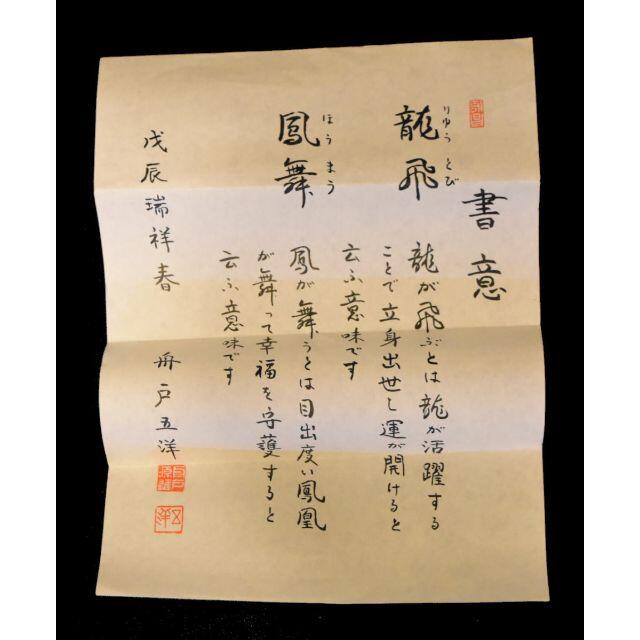 書意
龍飛
りゅう とび
龍が飛ぶとは龍が活躍する
ことで立身出世し運が開けると
云ふ意味です
鳳舞
ほう まう
鳳が舞うとは目出度い鳳凰
が舞って幸福を守護すると
云ふ意味です
戊辰瑞祥春
舟戸五洋